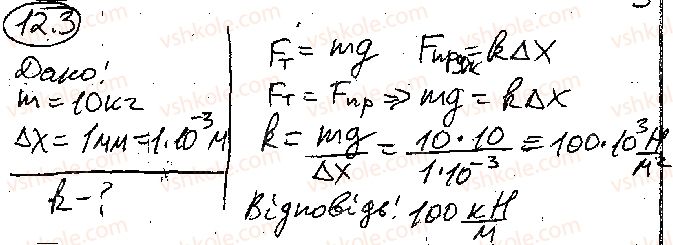 12.3
Дано!
m = 10кг
Δx = 1мм = 1·10⁻³ м
k - ?
Fт = mg Fпруж = kΔx
Fт = Fпр ⇒ mg = kΔx
k = mg/Δx = 10·10/1·10⁻³ = 100·10³ Н/м²
Відповідь! 100 кН/м
vshkole.com